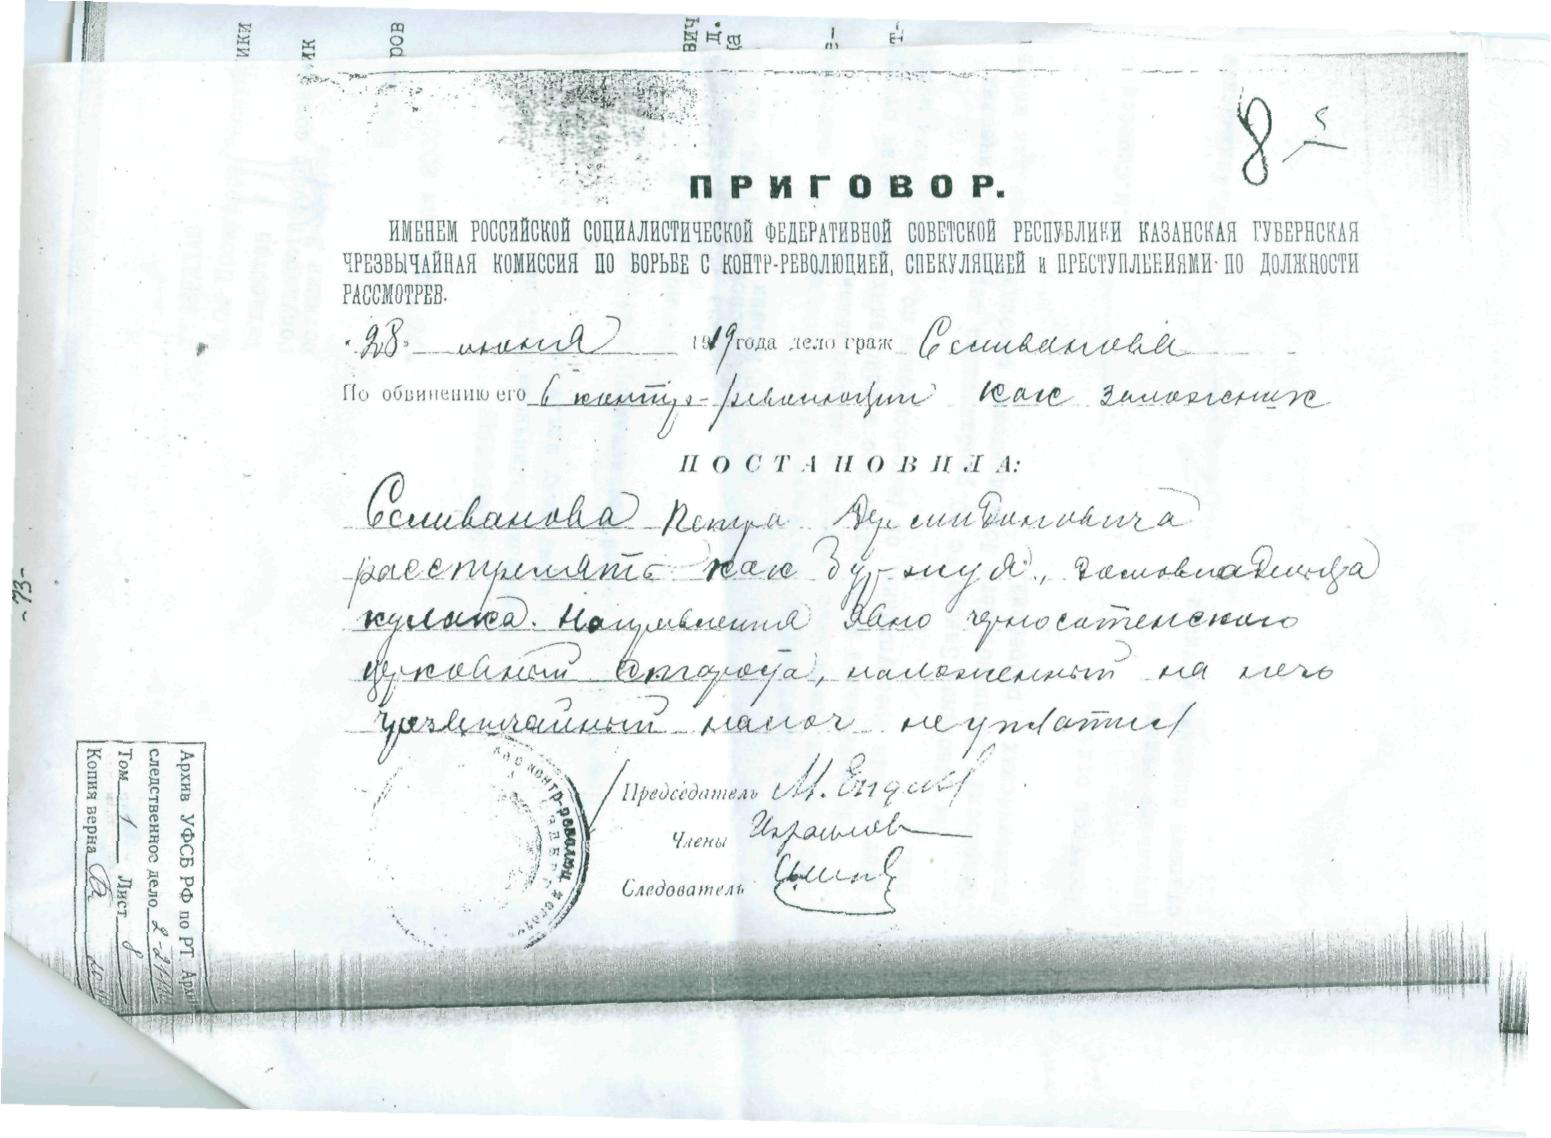 8
5
ПРИГОВОР.
ИМЕНЕМ РОССИЙСКОЙ СОЦИАЛИСТИЧЕСКОЙ ФЕДЕРАТИВНОЙ СОВЕТСКОЙ РЕСПУБЛИКИ КАЗАНСКАЯ ГУБЕРНСКАЯ
ЧРЕЗВЫЧАЙНАЯ КОМИССИЯ ПО БОРЬБЕ С КОНТР-РЕВОЛЮЦИЕЙ, СПЕКУЛЯЦИЕЙ и ПРЕСТУПЛЕНИЯМИ ПО ДОЛЖНОСТИ
РАССМОТРЕВ.
"28" июня 1919 года дело граж Селиванова
По обвинению его в контр-революции как заложник
ПОСТАНОВИЛА:
Селиванова Петра
расстрелять как буржуя, домовладельца
кулака. Направления явно черносотенского
церковный староста, наложенный на него
чрезвычайный налог не уплатил
Председатель М.
Члены
Следователь
-73-
Архив УФСБ РФ по РТ Архи
следственное дело 2-
Том 1 Лист 8
Копия верна
ики
ик
ров
вич
д.
ца
е-
т-